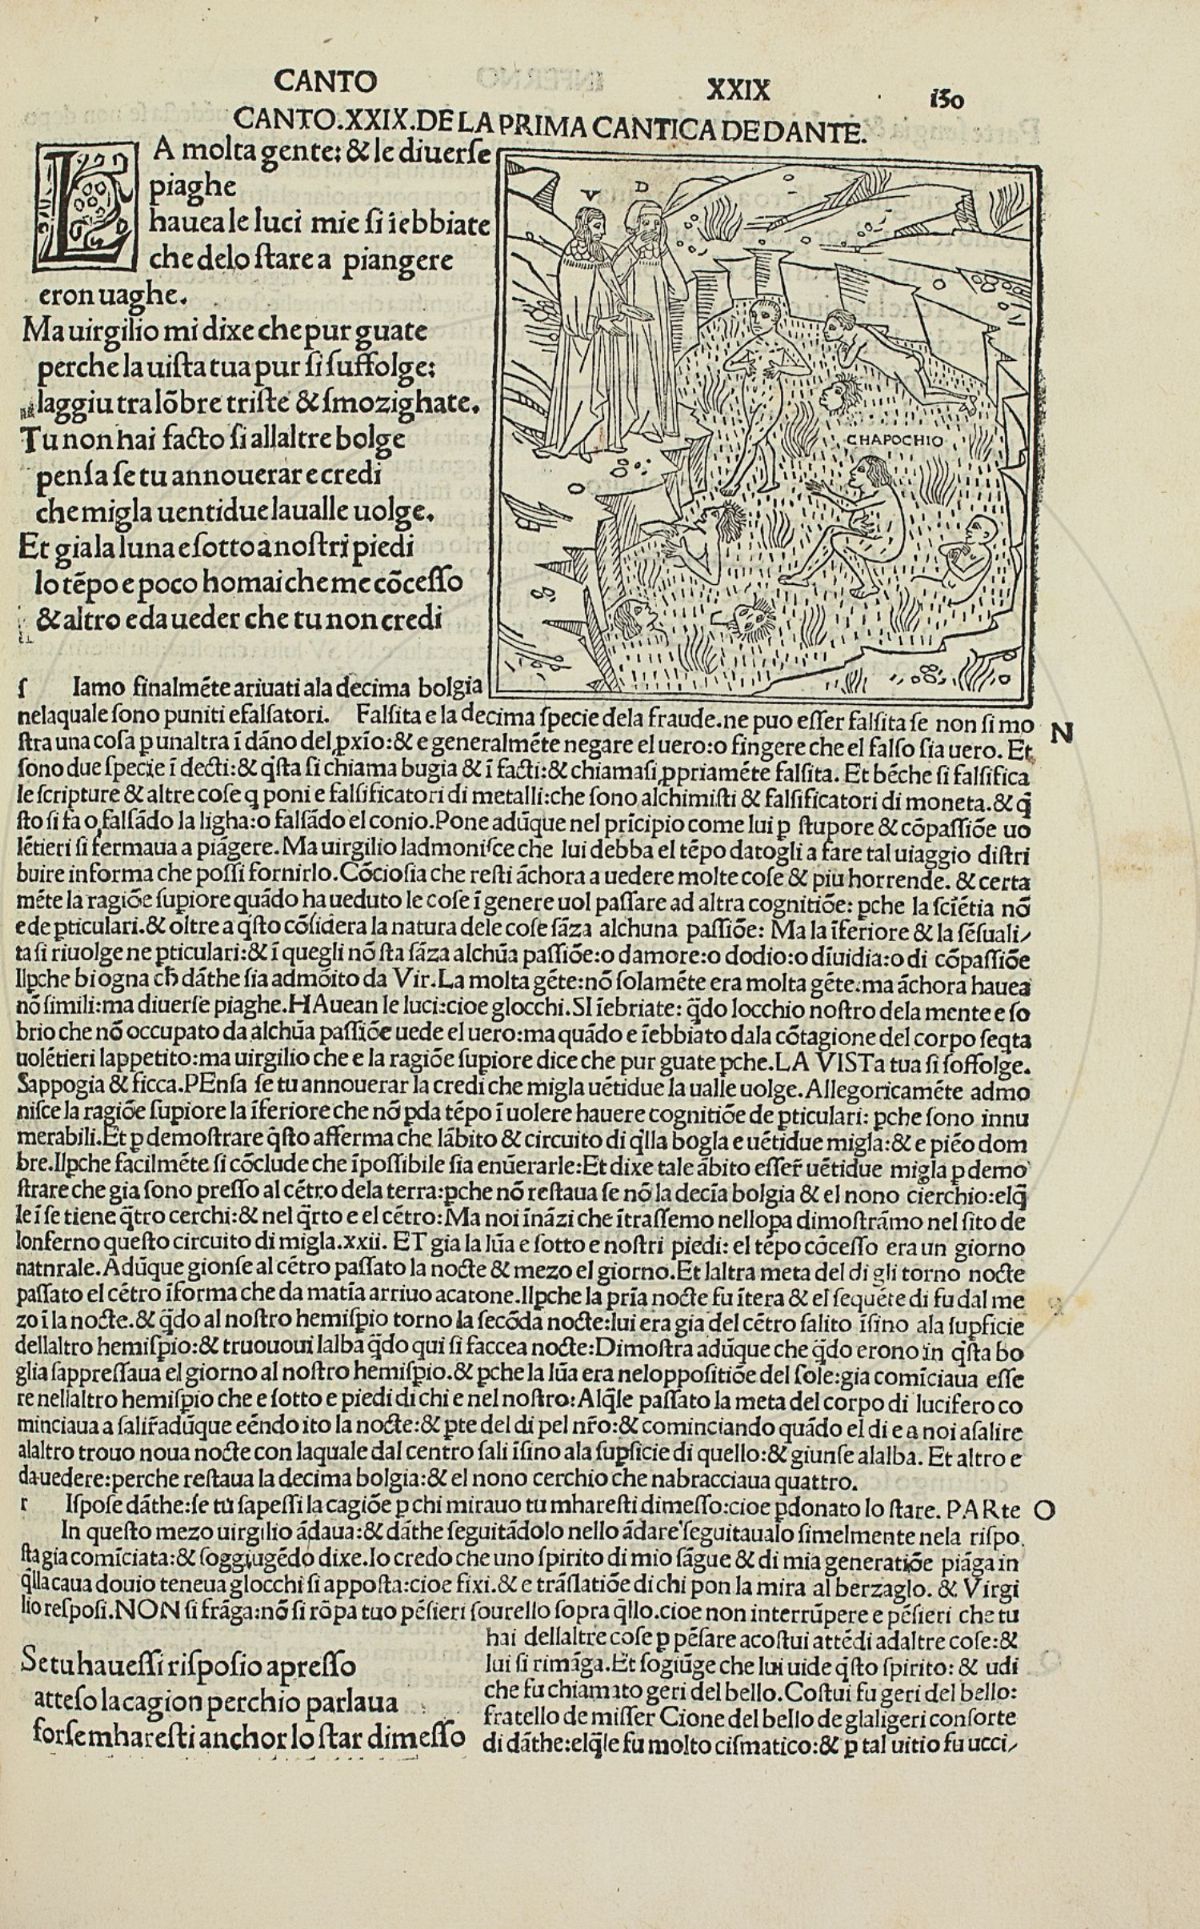 CANTO XXIX i50
CANTO.XXIX.DE LA PRIMA CANTICA DE DANTE.
LA molta gente: & le diuerse
piaghe
hauea le luci mie si iebbiate
che de lo stare a piangere
eron uaghe.
Ma uirgilio mi dixe che pur guate
perche la uista tua pur si suffolge:
laggiu tra lōbre triste & smozighate.
Tu non hai facto si allaltre bolge
pensa se tu annouerar e credi
che migla uentidue laualle uolge.
Et gia la luna e sotto a nostri piedi
lo tēpo e poco homai che me cōcesso
& altro e da ueder che tu non credi
V D
CHAPOCHIO
s Iamo finalmēte ariuati ala decima bolgia
nelaquale sono puniti efalsatori. Falsita e la decima specie dela fraude.ne puo esser falsita se non si mo N
stra una cosa p unaltra ī dāno del pxīo:& e generalmēte negare el uero:o fingere che el falso sia uero. Et
sono due specie ī decti:& q̄sta si chiama bugia & ī facti:& chiamasi ppriamēte falsita. Et bēche si falsifica
le scripture & altre cose q poni e falsificatori di metalli:che sono alchimisti & falsificatori di moneta.& q̄
sto si fa o falsādo la ligha:o falsādo el conio.Pone adūque nel prīcipio come lui p stupore & cōpassiōe uo
lētieri si fermaua a piāgere.Ma uirgilio ladmonisce che lui debba el tēpo datogli a fare tal uiaggio distri
buire informa che possi fornirlo.Cōciosia che resti āchora a uedere molte cose & piu horrende. & certa
mēte la ragiōe supiore quādo ha ueduto le cose ī genere uol passare ad altra cognitiōe: pche la sciētia nō
e de pticulari.& oltre a q̄sto cōsidera la natura dele cose sāza alchuna passiōe: Ma la īferiore & la sēsuali/
ta si riuolge ne pticulari:& ī quegli nō sta sāza alchūa passiōe:o damore:o dodio:o dīuidia:o di cōpassiōe
Ilpche biogna ch̄ dāthe sia admōito da Vir.La molta gēte:nō solamēte era molta gēte.ma āchora hauea
nō simili:ma diuerse piaghe.HAuean le luci:cioe glocchi.SI īebriate: q̄do locchio nostro dela mente e so
brio che nō occupato da alchūa passiōe uede el uero:ma quādo e īebbiato dala cōtagione del corpo seqta
uolētieri lappetito:ma uirgilio che e la ragiōe supiore dice che pur guate pche.LA VISTa tua si soffolge.
Sappogia & ficca.PEnsa se tu annouerar la credi che migla uētidue la ualle uolge.Allegoricamēte admo
nisce la ragiōe supiore la īferiore che nō pda tēpo ī uolere hauere cognitiōe de pticulari: pche sono innu
merabili.Et p demostrare q̄sto afferma che lābito & circuito di q̄lla bogla e uētidue migla:& e piēo dom
bre.Ilpche facilmēte si cōclude che īpossibile sia enūerarle:Et dixe tale ābito esser̄ uētidue migla p demo
strare che gia sono presso al cētro dela terra:pche nō restaua se nō la decīa bolgia & el nono cierchio:elq̄
le ī se tiene q̄tro cerchi:& nel q̄rto e el cētro:Ma noi īnāzi che ītrassemo nellopa dimostrāmo nel sito de
lonferno questo circuito di migla.xxii. ET gia la lūa e sotto e nostri piedi: el tēpo cōcesso era un giorno
natnrale.Adūque gionse al cētro passato la nocte & mezo el giorno.Et laltra meta del di gli torno nocte
passato el cētro īforma che da matīa arriuo acatone.Ilpche la prīa nocte fu ītera & el sequēte di fu dal me
zo ī la nocte.& q̄do al nostro hemispio torno la secōda nocte:lui era gia del cētro salito īsino ala supficie
dellaltro hemispio:& truououi lalba q̄do qui si faccea nocte:Dimostra adūque che q̄do erono in q̄sta bo
glia sappressaua el giorno al nostro hemispio.& pche la lūa era neloppositiōe del sole:gia comīciaua esse
re nellaltro hemispio che e sotto e piedi di chi e nel nostro:Alq̄le passato la meta del corpo di lucifero co
minciaua a salir̄adūque eēndo ito la nocte:& pte del di pel nr̄o:& cominciando quādo el di e a noi asalire
alaltro trouo noua nocte con laquale dal centro sali īsino ala supsicie di quello:& giunse alalba. Et altro e
da uedere:perche restaua la decima bolgia:& el nono cerchio che nabracciaua quattro.
r Ispose dāthe:se tū sapessi la cagiōe p chi mirauo tu mharesti dimesso:cioe pdonato lo stare. PARte O
In questo mezo uirgilio ādaua:& dāthe seguitādolo nello ādare seguitaualo simelmente nela rispo.
sta gia comīciata:& soggiugēdo dixe.Io credo che uno spirito di mio sāgue & di mia generatiōe piāga in
q̄lla caua douio teneua glocchi si apposta:cioe fixi.& e trāslatiōe di chi pon la mira al berzaglo. & Virgi
lio resposi.NON si frāga:nō si rōpa tuo pēsieri sourello sopra q̄llo.cioe non interrūpere e pēsieri che tu
hai dellaltre cose p pēsare acostui attēdi adaltre cose:&
lui si rimāga.Et sogiūge che lui uide q̄sto spirito: & udi
che fu chiamato geri del bello.Costui fu geri del bello:
fratello de misser Cione del bello de glaligeri consorte
di dāthe:elq̄le fu molto cismatico:& p tal uitio fu ucci/
Se tu hauessi risposio apresso
atteso la cagion perchio parlaua
forse mharesti anchor lo star dimesso